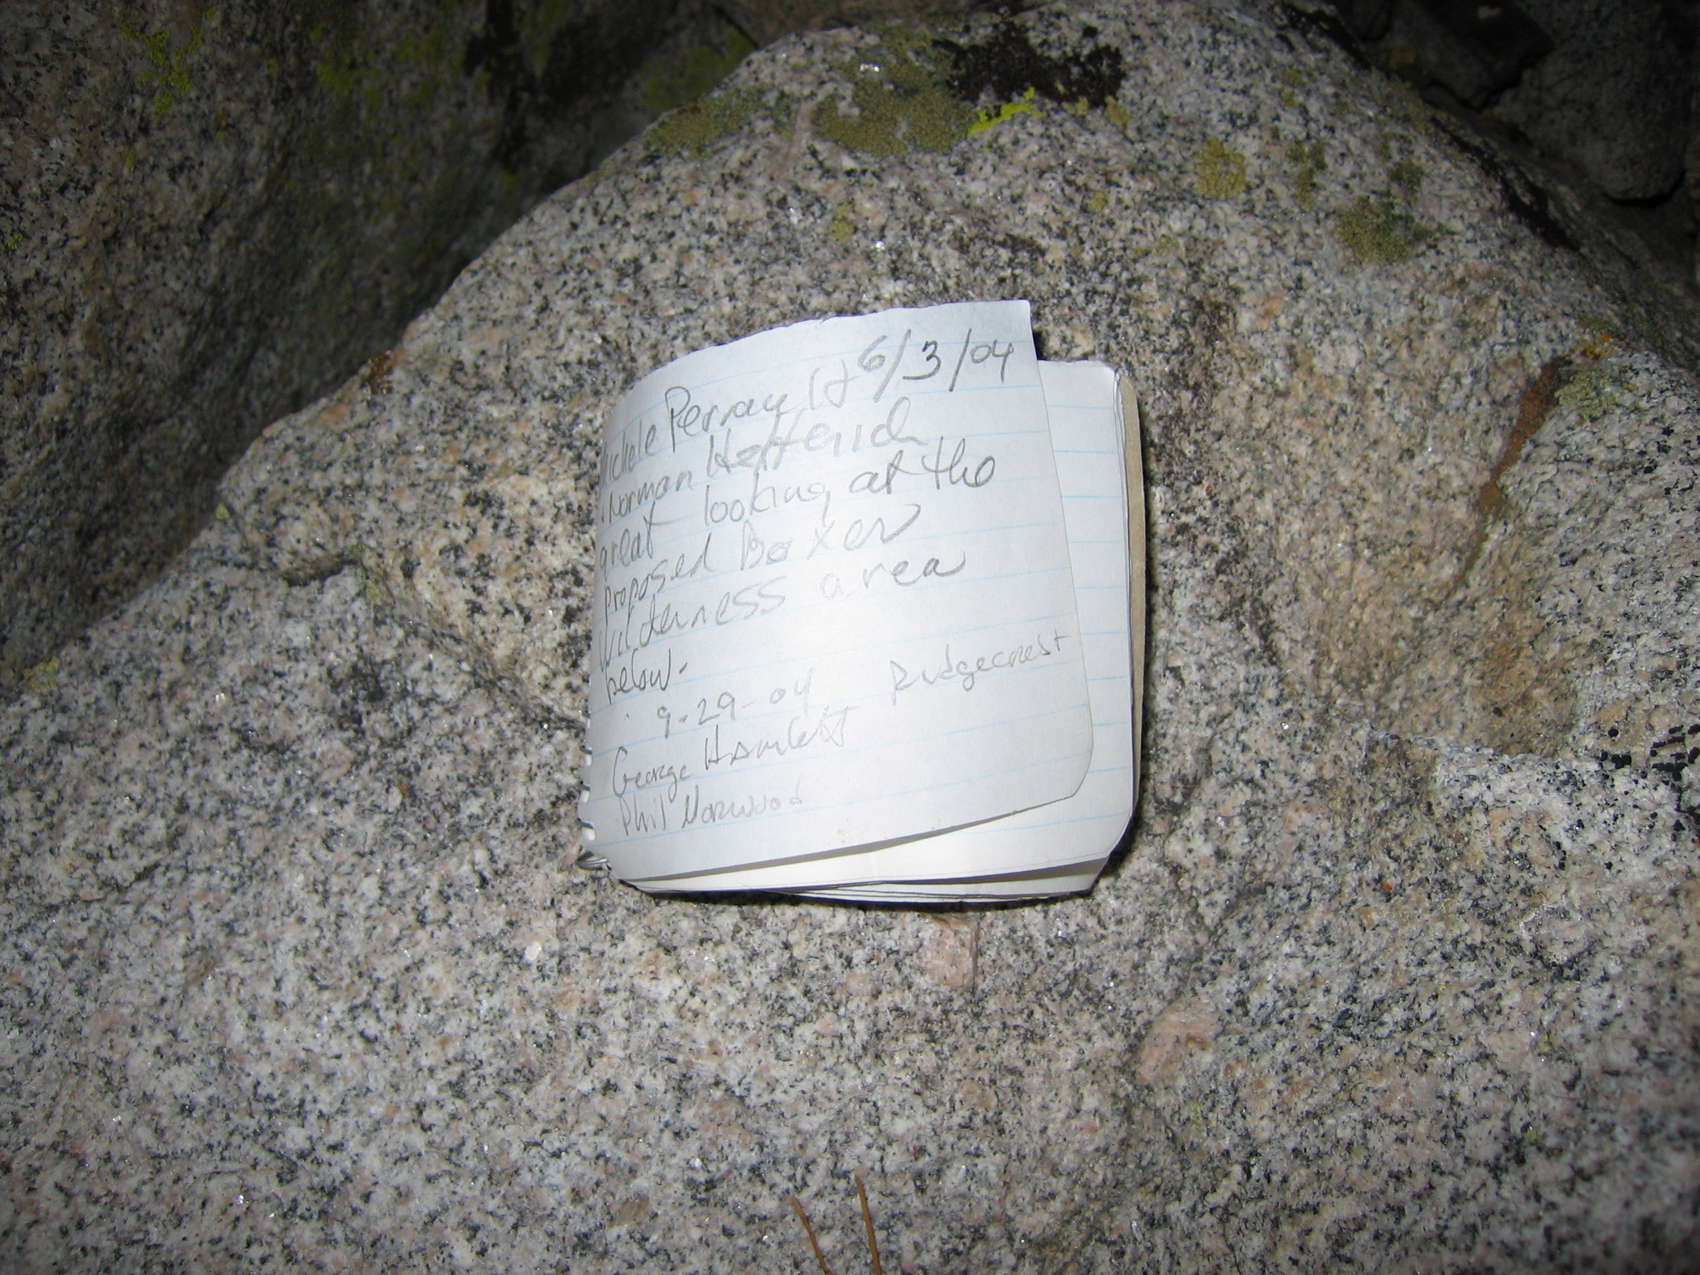 Michele Perray 6/3/04
Norman
great looking at the
proposed Boxer
Wilderness area
below.
9-29-04 Ridgecrest
George Hamlett
Phil Norwood